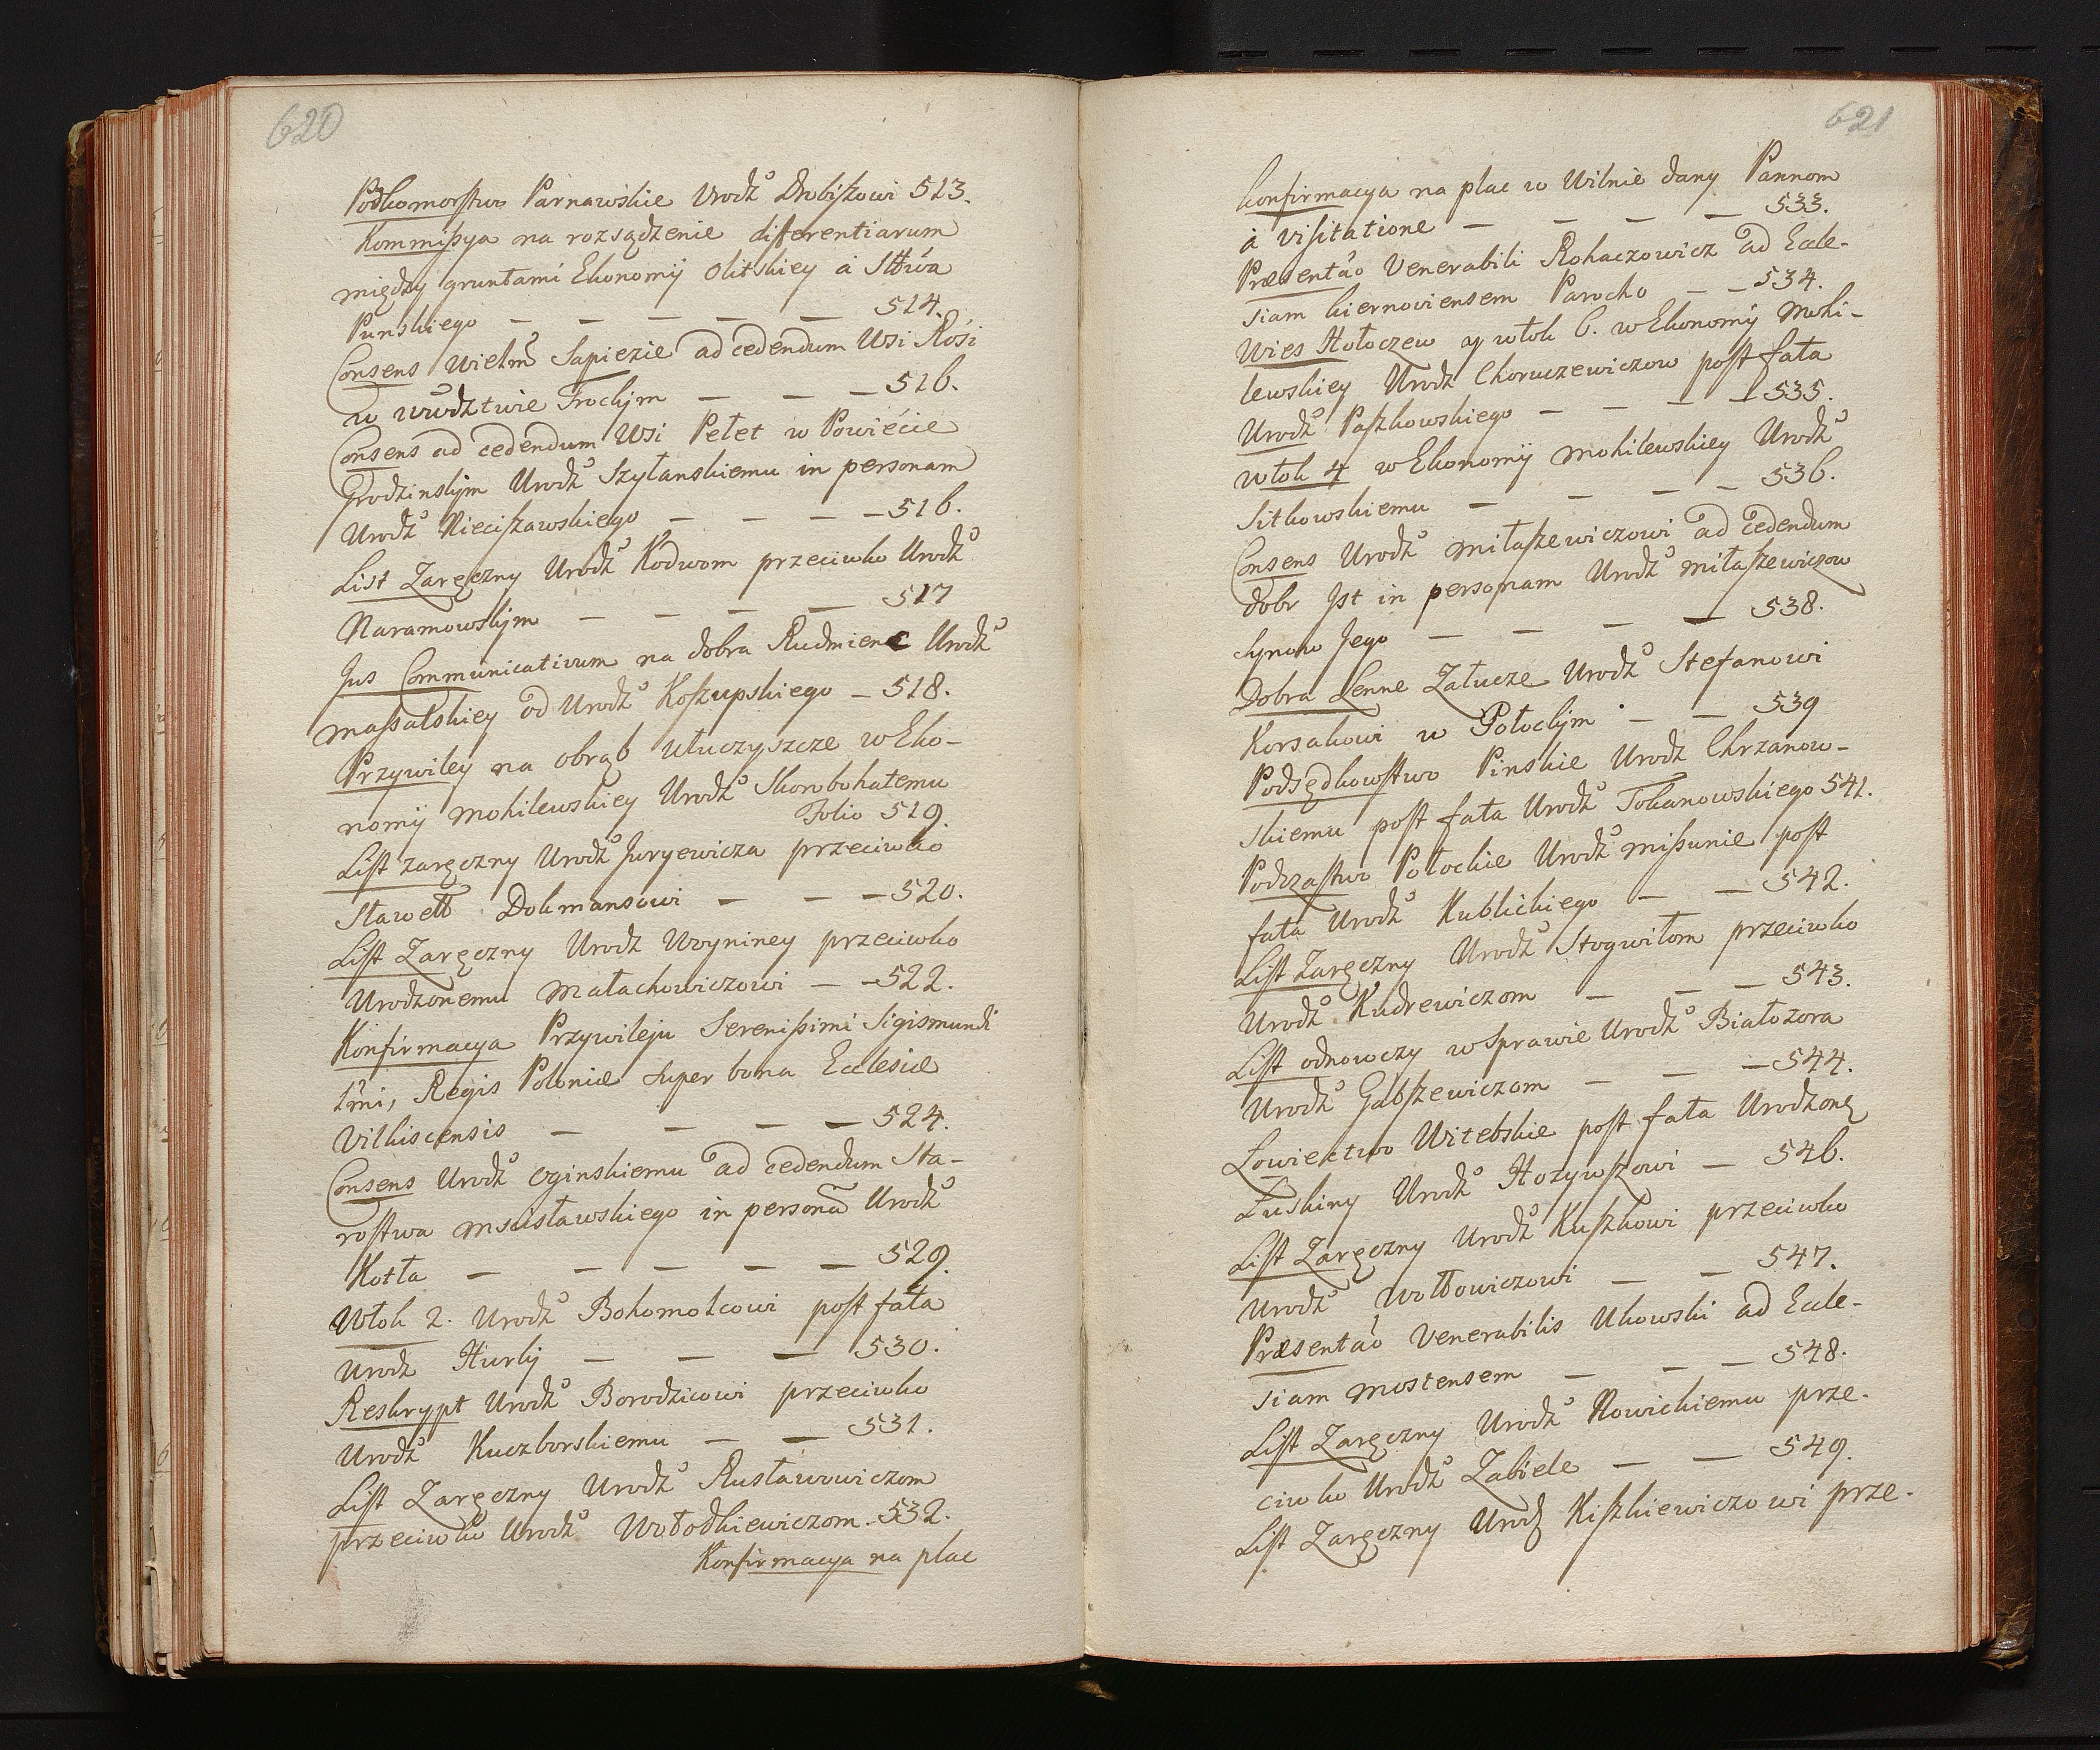 620
Podkomorstwo Parnawskie Urodź Drobiszowi 513.
Kommissya na rozsądzenie differentiarum
między gruntami Ekonomÿ Olitskiey á Sttwa
Punskiego — — — — — 514.
Consens Wielm Sapiezie ad cedendum Wsi Rośi
w Wwodztwie Trockim — — — 516.
Consens ad cedendum Wsi Pełet w Powiecie
Grodzinskim Urodź Szytanskiemu in personam
Urodź Nieciszawskiego — — — — 516.
List Zaręczny Urodź Kodwom przeciwko Urodź
Naramowskim — — — — 517
Jus Communicativum na dobra Rudmienc Urodź
Massalskiey od Urodź Koszupskiego — 518.
Przywiley na obrąb Utuczyszcze w Eko-
nomÿ Mohilewskiey Urodź Skorobohatemu
Folio 519.
List zaręczny Urodź Juryewicza przeciwko
Sławett Dokmansowi — — — 520.
List Zaręczny Urodz Woyniney przeciwko
Urodzonemu Małachowiczowi — — 522.
Konfirmacya Przywileju Serenissimi Sigismundi
1mi, Regis Poloniæ super bona Ecclesiæ
Vilkiscensis — — — — 524.
Consens Urodź Oginskiemu ad cedendum Sta-
rostwa Mscisławskiego in personã Urodź
Kotła — — — — — 529.
Włok 2. Urodź Bohomolcowi post fata
Urodz Hurly — — — 530.
Reskrypt Urodź Borodzicowi przeciwko
Urodź Kuczborskiemu — — 531.
List Zaręczny Urodź Rusławowiczom
przeciwko Urodź Wołodkiewiczom. 532.
Konfirmacya na plac
621
Konfirmacya na plac w Wilnie dany Pannom
á Visitatione — — — — 533.
Præsentáo Venerabili Rohaczowicz ad Eccle-
siam Kiernoviensem Parocho — — 534.
Wies Hołoczew y włok 6. w Ekonomÿ Mohi-
lewskiey Urodz Choruczewiczow post fata
Urodź Paszkowskiego — — — — 535.
Włok 4 w Ekonomÿ Mohilewskiey Urodź
Sitkowskiemu — — — — 536.
Consens Urodź Miłaszewiczowi ad cedendum
dobr Jst in personam Urodź Miłaszewiczow
Synow Jego — — — — 538.
Dobra Lenne Załucze Urodź Stefanowi
Korsakowi w Połockim — — 539
Podsędkowstwo Pinskie Urodz Chrzanow-
skiemu post fata Urodź Tokanowskiego 541.
Podczastwo Połockie Urodź Missunie post
fata Urodź Kublickiego — — 542.
List Zaręczny Urodź Stogwiłom przeciwko
Urodź Kudrewiczom — — — 543.
List odnowczy w Sprawie Urodź Białozora
Urodź Gabszewiczom — — — 544.
Łowiectwo Witebskie post fata Urodzoneg
Łuskiny Urodź Hozywszowi — 546.
List Zaręczny Urodź Kuszkowi przeciwko
Urodź Wołłowiczowi — — 547.
Præsentáo Venerabilis Ukowski ad Eccle-
siam Mostensem — — — 548.
List Zaręczny Urodź Nowickiemu prze-
ciwko Urodź Zabiele — — 549.
List Zaręczny Urodz Kiszkiewiczowi prze-